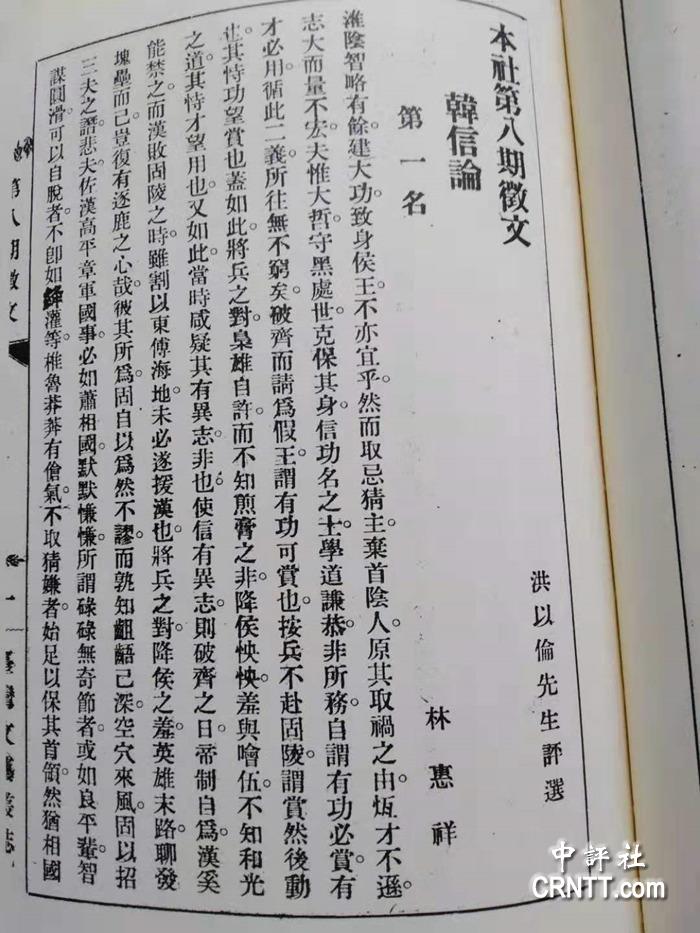 本社第八期徵文
洪以倫先生評選
韓信論
第一名 林惠祥
淮陰智略有餘建大功致身侯王不亦宜乎。然而取忌猜主棄首陰人。原其取禍之由。恆才不遜。
志大而量不宏。夫惟大哲守黑處世克保其身。信功名之士學道謙恭。非所務。自謂有功必賞。有
才必用。循此二義所往無不窮矣。破齊而請爲假王。謂有功可賞也。按兵不赴固陵。謂賞然後動
也。其恃功望賞也蓋如此。將兵之對。梟雄自許。而不知煎膏之非。降侯怏怏。羞與噲伍。不知和光
之道。其恃才望用也又如此。當時咸疑其有異志。非也。使信有異志。則破齊之日。帝制自爲。漢奚
能禁之。而漢敗固陵之時。雖割以東傅海地。未必遂援漢也。將兵之對。降侯之羞。英雄末路。聊發
塊壘而已。豈復有逐鹿之心哉。彼其所爲固自以爲然不謬。而孰知齟齬已深。空穴來風。固以招
三夫之譖。悲夫佐漢高平章軍國事。必如蕭相國。默默慊慊。所謂碌碌無奇節者。或如良平輩智
謀圓滑。可以自脫者。不卽如絳灌等。椎魯莽莽有傖氣。不取猜嫌者。始足以保其首領。然猶相國
第八期徵文
一
臺灣文藝叢誌
中評社
CRNTT.com